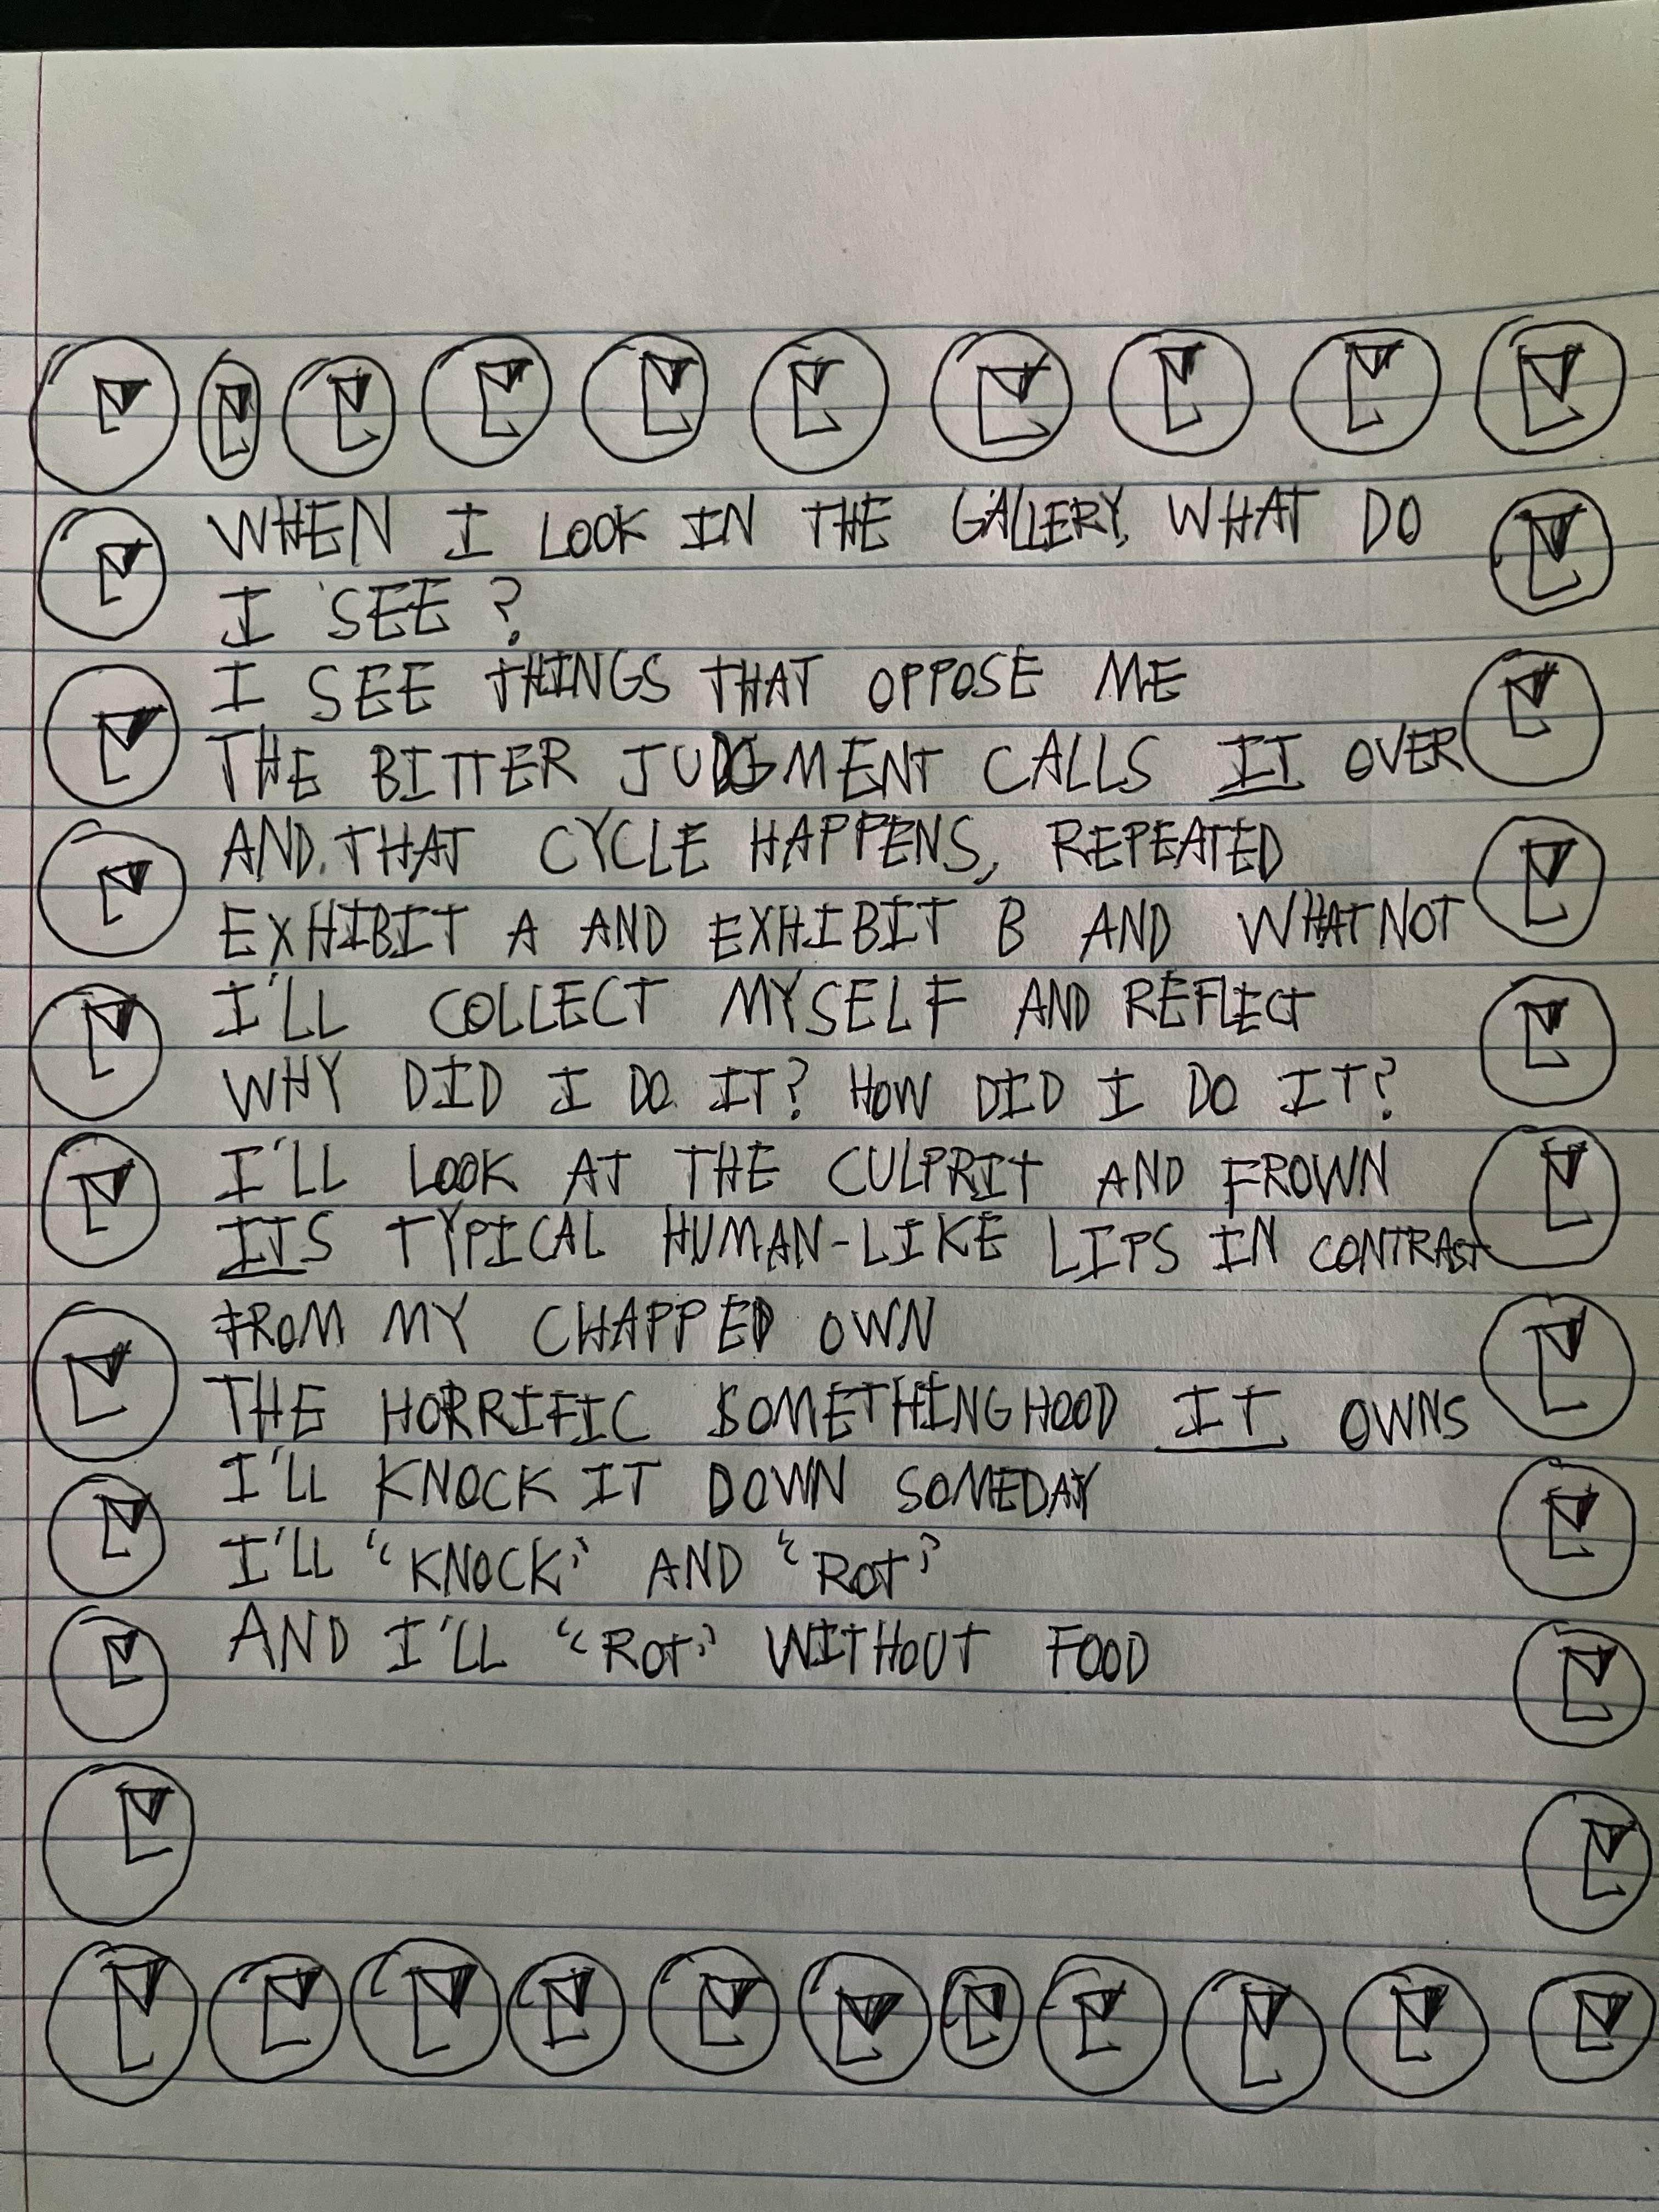 WHEN I LOOK IN THE GALLERY, WHAT DO
I SEE?
I SEE THINGS THAT OPPOSE ME
THE BITTER JUDGMENT CALLS IT OVER
AND THAT CYCLE HAPPENS, REPEATED
EXHIBIT A AND EXHIBIT B AND WHATNOT
I'LL COLLECT MYSELF AND REFLECT
WHY DID I DO IT? HOW DID I DO IT?
I'LL LOOK AT THE CULPRIT AND FROWN
ITS TYPICAL HUMAN-LIKE LIPS IN CONTRAST
FROM MY CHAPPED OWN
THE HORRIFIC SOMETHINGHOOD IT OWNS
I'LL KNOCK IT DOWN SOMEDAY
I'LL "KNOCK" AND "ROT"
AND I'LL "ROT" WITHOUT FOOD